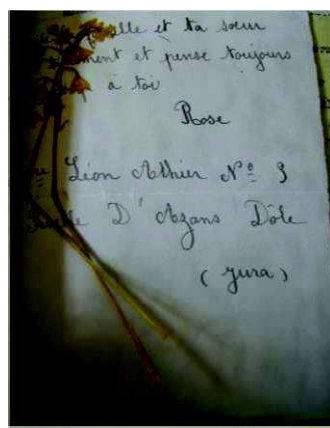 et ta sœur
et pense toujours
à toi
Rose
Léon Athier Nº 9
D'Azans Dôle
(Jura)